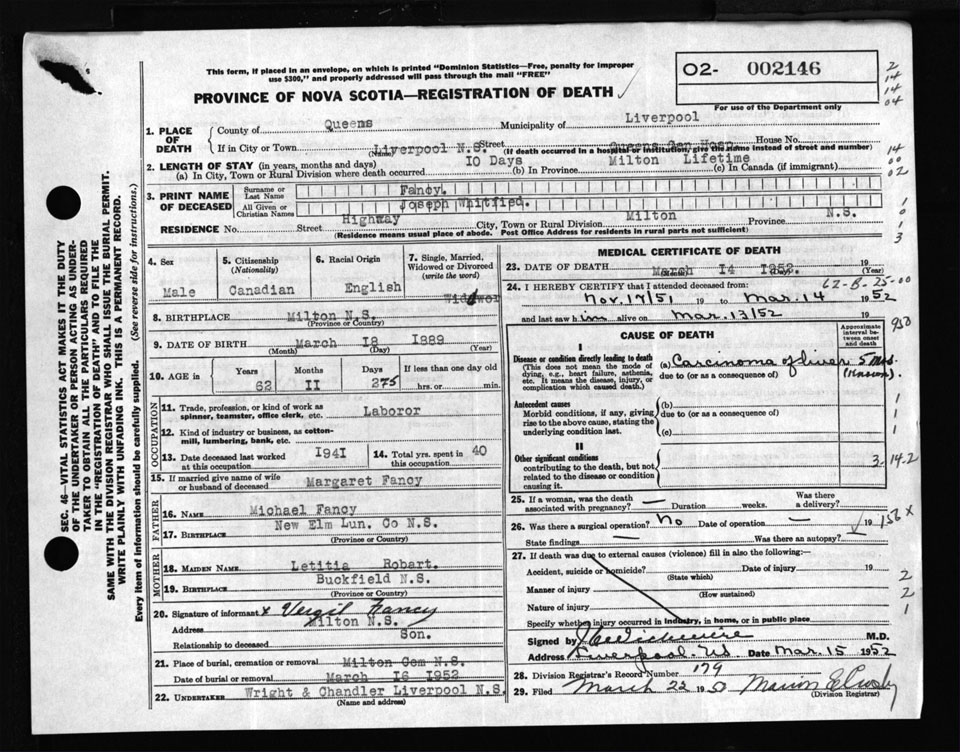 This form, if placed in an envelope, on which is printed "Dominion Statistics—Free, penalty for improper
use $300," and properly addressed will pass through the mail "FREE"
PROVINCE OF NOVA SCOTIA—REGISTRATION OF DEATH
O2- 002146
For use of the Department only
2
14
14
04
1. PLACE OF DEATH
County of Queens Municipality of Liverpool
If in City or Town Liverpool N.S. Street Queens Gen Hosp House No.
(Name) (If death occurred in a hospital or institution, give the name instead of street and number)
14
00
02
2. LENGTH OF STAY (in years, months and days) IO Days Milton Lifetime
(a) In City, Town or Rural Division where death occurred (b) In Province (c) In Canada (if immigrant)
3. PRINT NAME OF DECEASED
Surname or Last Name Fancy.
All Given or Christian Names Joseph Whitfied.
RESIDENCE No. Street Highway City, Town or Rural Division Milton Province N.S.
(Residence means usual place of abode. Post Office Address for residents in rural parts not sufficient)
1
0
1
3
4. Sex Male
5. Citizenship (Nationality) Canadian
6. Racial Origin English
7. Single, Married, Widowed or Divorced (write the word) Widowor
8. BIRTHPLACE Milton N.S.
(Province or Country)
9. DATE OF BIRTH March I8 I889
(Month) (Day) (Year)
10. AGE in Years Months Days If less than one day old
62 II 275 hrs. or min.
OCCUPATION
11. Trade, profession, or kind of work as spinner, teamster, office clerk, etc. Laboror
12. Kind of industry or business, as cotton-mill, lumbering, bank, etc.
13. Date deceased last worked at this occupation I94I
14. Total yrs. spent in this occupation 40
15. If married give name of wife or husband of deceased Margaret Fancy
FATHER
16. NAME Michael Fancy
17. BIRTHPLACE New Elm Lun. Co N.S.
(Province or Country)
MOTHER
18. MAIDEN NAME Letitia Robart.
19. BIRTHPLACE Buckfield N.S.
(Province or Country)
20. Signature of informant x Vergil Fancy
Address Milton N.S.
Relationship to deceased Son.
21. Place of burial, cremation or removal Milton Cem N.S.
Date of burial or removal March I6 I952
22. UNDERTAKER Wright & Chandler Liverpool N.S.
(Name and address)
MEDICAL CERTIFICATE OF DEATH
23. DATE OF DEATH March I4 I952. 19
(Month) (Day) (Year)
24. I HEREBY CERTIFY that I attended deceased from: 62-B-25-00
Nov. 17/51 19 to Mar. 14 1952
and last saw him alive on Mar. 13/52 19
950
CAUSE OF DEATH
Approximate interval between onset and death
I
Disease or condition directly leading to death
(This does not mean the mode of dying, e.g., heart failure, asthenia, etc. It means the disease, injury, or complication which caused death.)
(a) Carcinoma of liver 5 mos.
due to (or as a consequence of) (Known)
Antecedent causes
Morbid conditions, if any, giving rise to the above cause, stating the underlying condition last.
(b)
due to (or as a consequence of)
(c)
1
1
1
II
Other significant conditions
contributing to the death, but not related to the disease or condition causing it.
3-14-2
25. If a woman, was the death associated with pregnancy? — Duration weeks. Was there a delivery?
26. Was there a surgical operation? No Date of operation — 19
156 x
State findings — Was there an autopsy?
27. If death was due to external causes (violence) fill in also the following:—
Accident, suicide or homicide? Date of injury 19
(State which)
Manner of injury
(How sustained)
Nature of injury
Specify whether injury occurred in industry, in home, or in public place
2
2
1
Signed by M.D.
Address Liverpool Date Mar. 15 1952
28. Division Registrar's Record Number 179
29. Filed March 22 19 Marion E
(Division Registrar)
SEC. 46—VITAL STATISTICS ACT MAKES IT THE DUTY
OF THE UNDERTAKER OR PERSON ACTING AS UNDER-
TAKER TO OBTAIN ALL THE PARTICULARS REQUIRED
IN THE "REGISTRATION OF DEATH" AND TO FILE THE
SAME WITH THE DIVISION REGISTRAR WHO SHALL ISSUE THE BURIAL PERMIT.
WRITE PLAINLY WITH UNFADING INK. THIS IS A PERMANENT RECORD.
Every item of information should be carefully supplied. (See reverse side for instructions.)